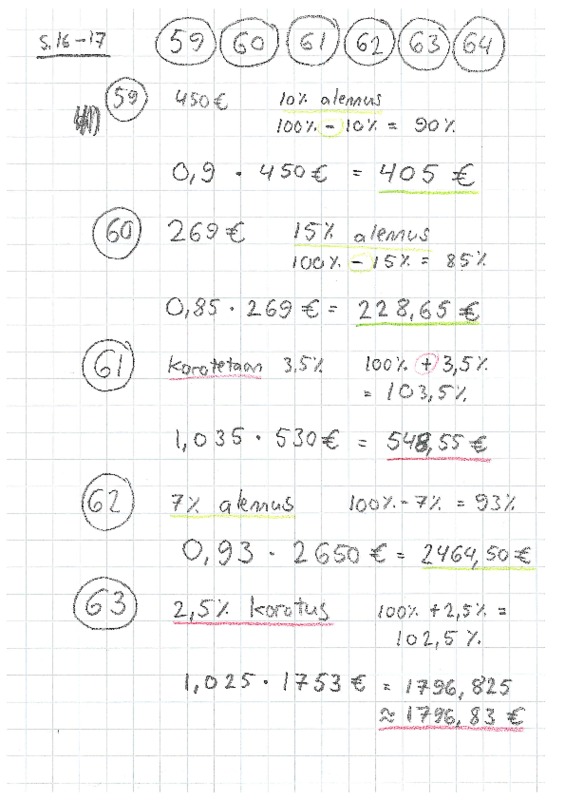 s. 16-17 59 60 61 62 63 64
59 450€ 10% alennus
100% - 10% = 90%
0,9 · 450€ = 405 €
60 269€ 15% alennus
100% - 15% = 85%
0,85 · 269€ = 228,65 €
61 korotetaan 3,5% 100% + 3,5%
= 103,5%
1,035 · 530€ = 548,55 €
62 7% alennus 100% - 7% = 93%
0,93 · 2650 € = 2464,50 €
63 2,5% korotus 100% + 2,5% =
102,5 %
1,025 · 1753 € = 1796,825
≈ 1796,83 €